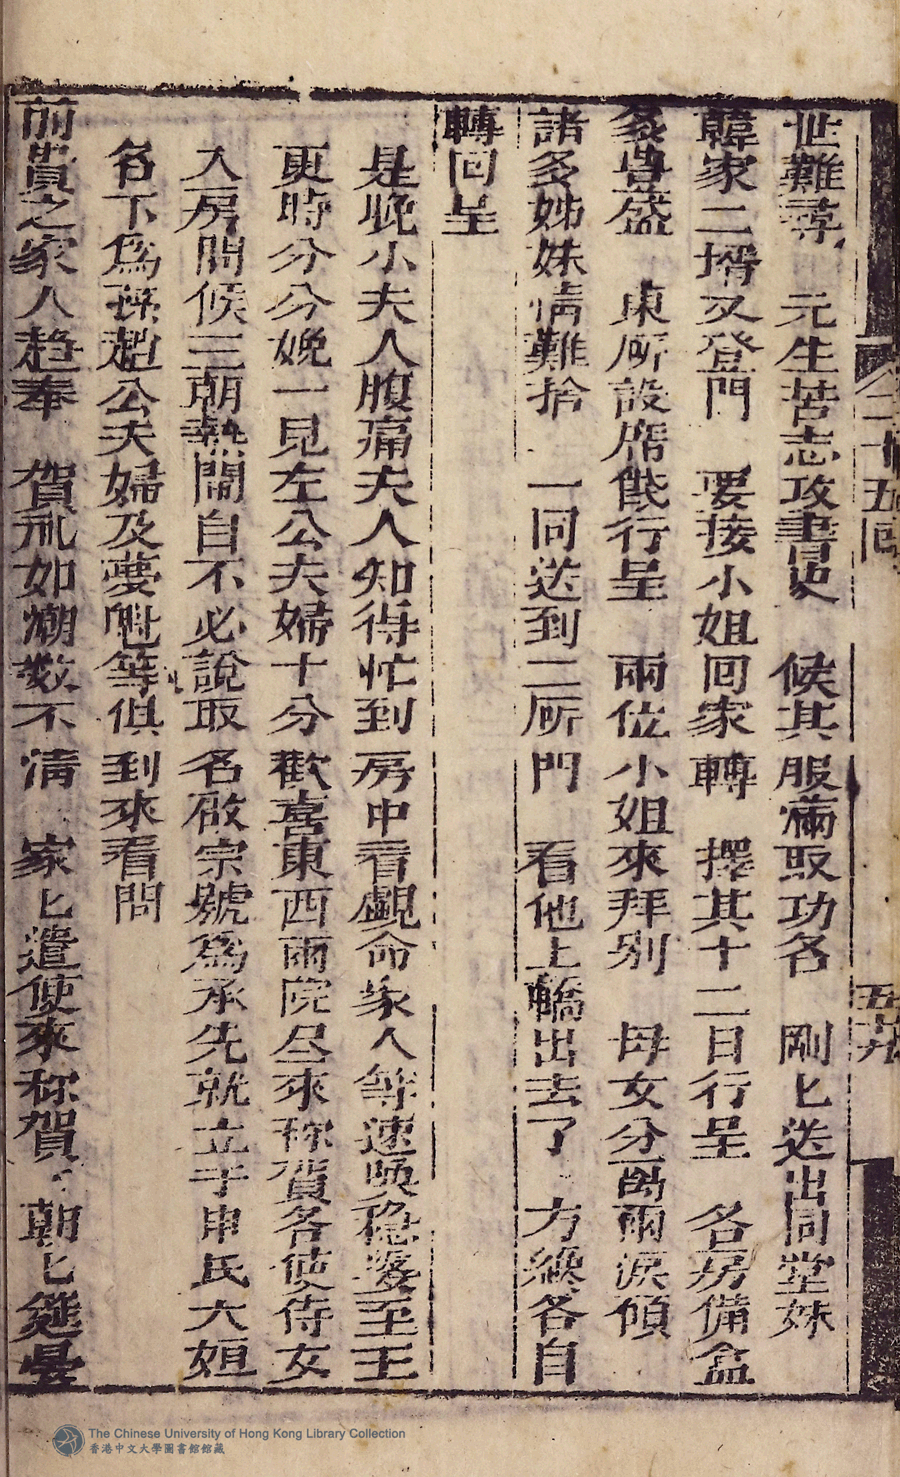 卷二十五回 五九
世難尋 元生苦志攻書史 候其服滿取功名 剛匕送出同堂妹
韓家二壻又登門 要接小姐回家轉 擇其十二日行呈 各房備盒
多豊盛 東所設席餞行呈 兩位小姐來拜别 母女分离兩淚傾
諸多姊妹情難捨 一同送到二所門 看他上轎出去了 方纔各自
轉回呈
是晚小夫人腹痛夫人知得忙到房中看覷命家人等速喚穩婆至王
更時分分娩一見左公夫婦十分歡喜東西兩院尽來称賀各使侍女
入房問候三朝熱鬧自不必說取名啟宗號為承先就立于申氏大姐
名下為孫趙公夫婦及夢魁等俱到來看問
前貴之家人趋奉 賀礼如潮数不清 家匕遣使來称賀 朝匕筵晏
The Chinese University of Hong Kong Library Collection
香港中文大學圖書館館藏